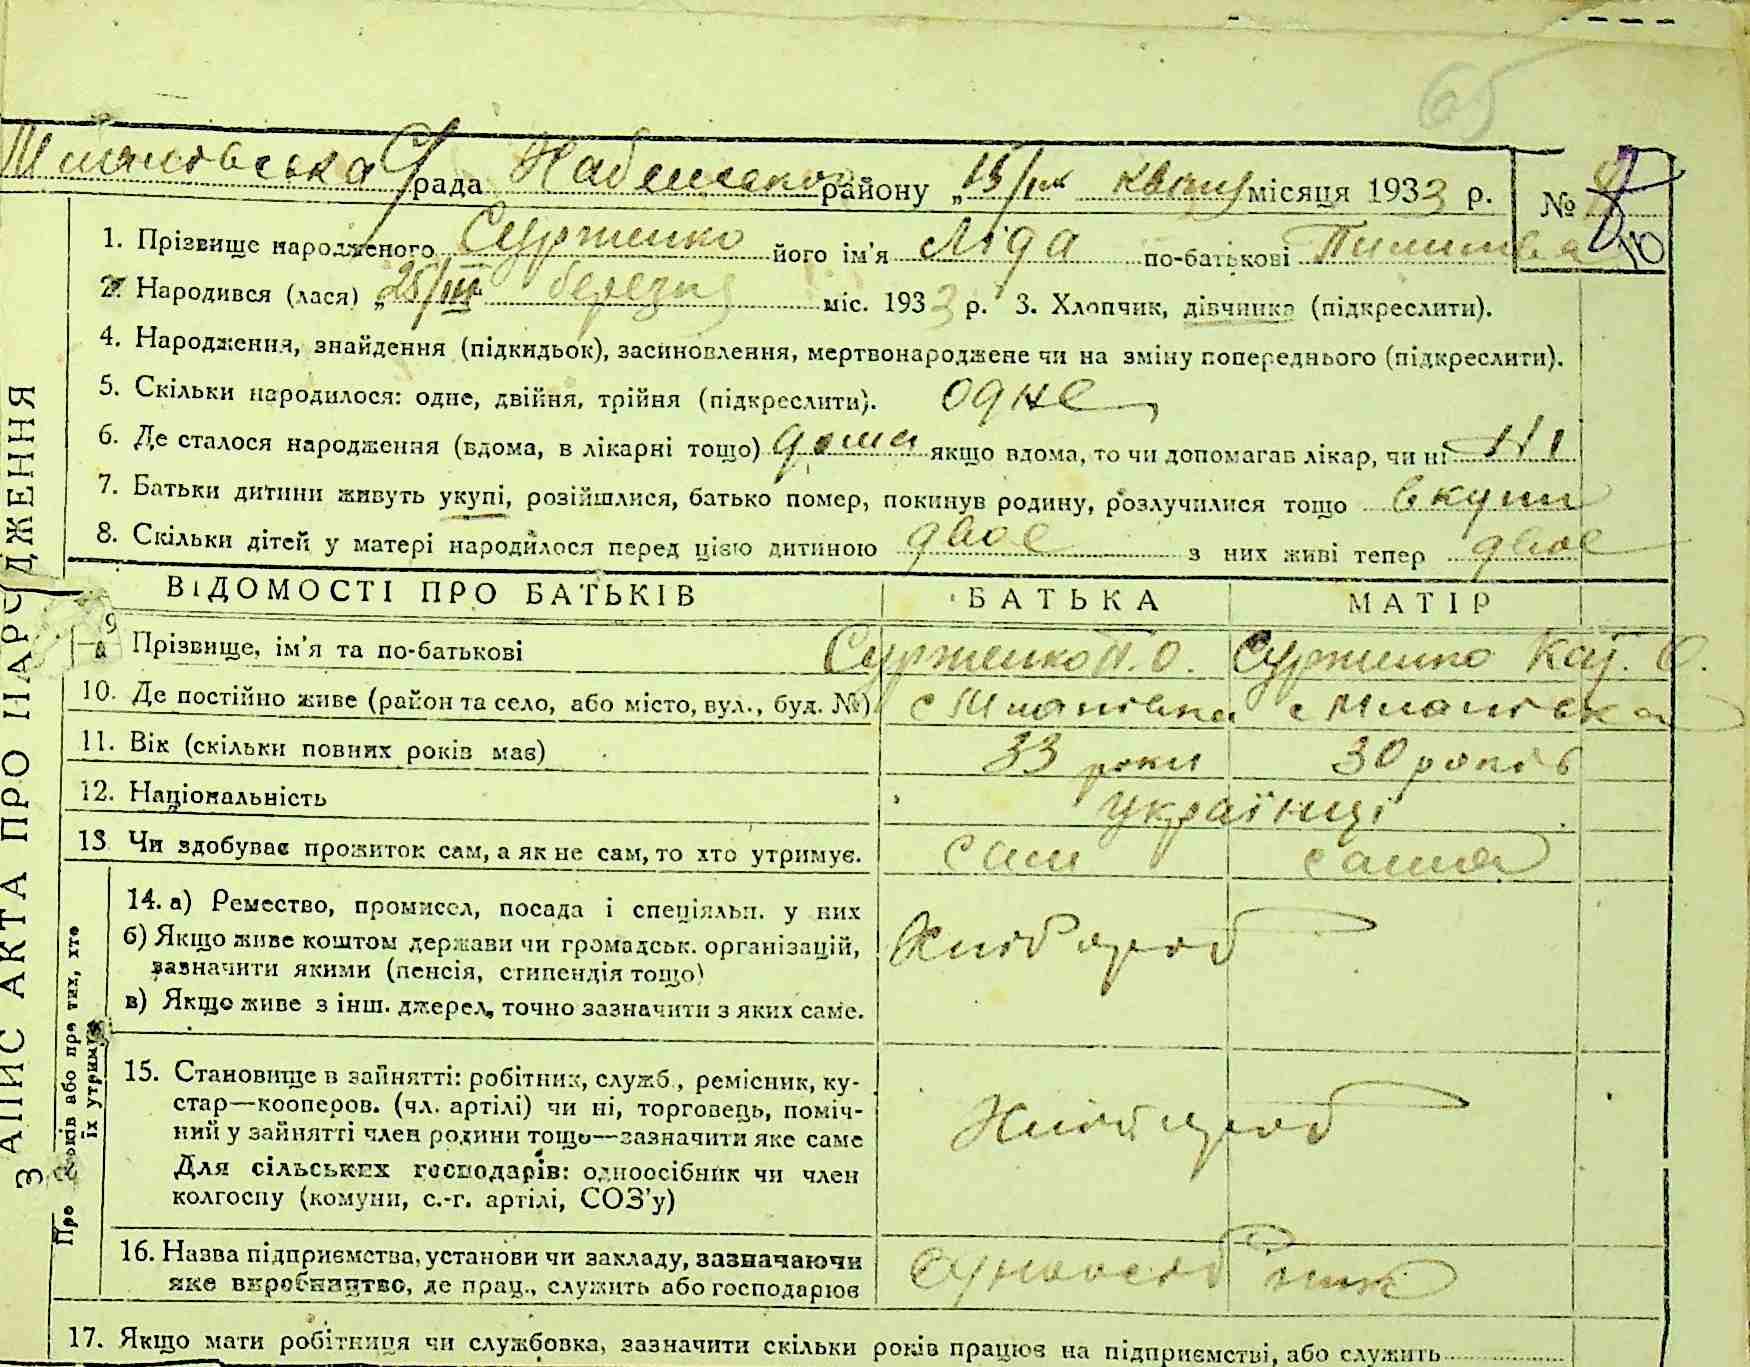 рада району „15/IV квіт місяця 1933 р. №
1. Прізвище народженого Сурженко його ім'я Ліда по-батькові
2. Народився (лася) „25/III березня міс. 1933 р. 3. Хлопчик, дівчинка (підкреслити).
4. Народження, знайдення (підкидьок), засиновлення, мертвонароджене чи на зміну попереднього (підкреслити).
5. Скільки народилося: одне, двійня, трійня (підкреслити). одне
6. Де сталося народження (вдома, в лікарні тощо) дома якщо вдома, то чи допомагав лікар, чи ні Ні
7. Батьки дитини живуть укупі, розійшлися, батько помер, покинув родину, розлучилися тощо вкупи
8. Скільки дітей у матері народилося перед цією дитиною двоє з них живі тепер двоє
ЗАПИС АКТА ПРО НАРОДЖЕННЯ
ВІДОМОСТІ ПРО БАТЬКІВ БАТЬКА МАТІР
9 Прізвище, ім'я та по-батькові Сурженко П. О. Сурженко Кат. О.
10. Де постійно живе (район та село, або місто, вул., буд. №)
11. Вік (скільки повних років має) 33 роки 30 років
12. Національність українці
13. Чи здобуває прожиток сам, а як не сам, то хто утримує. сам сама
Про батьків або про тих, хто їх утримує
14. а) Ремество, промисел, посада і спеціяльн. у них Хлібороб
б) Якщо живе коштом держави чи громадськ. організацій,
зазначити якими (пенсія, стипендія тощо)
в) Якщо живе з інш. джерел, точно зазначити з яких саме.
15. Становище в зайнятті: робітник, служб., ремісник, ку-
стар—кооперов. (чл. артілі) чи ні, торговець, поміч-
ний у зайнятті член родини тощо—зазначити яке саме Хлібороб
Для сільських господарів: одноосібник чи член
колгоспу (комуни, с.-г. артілі, СОЗ'у)
16. Назва підприємства, установи чи закладу, зазначаючи
яке виробництво, де прац., служить або господарює
17. Якщо мати робітниця чи службовка, зазначити скільки років працює на підприємстві, або служить